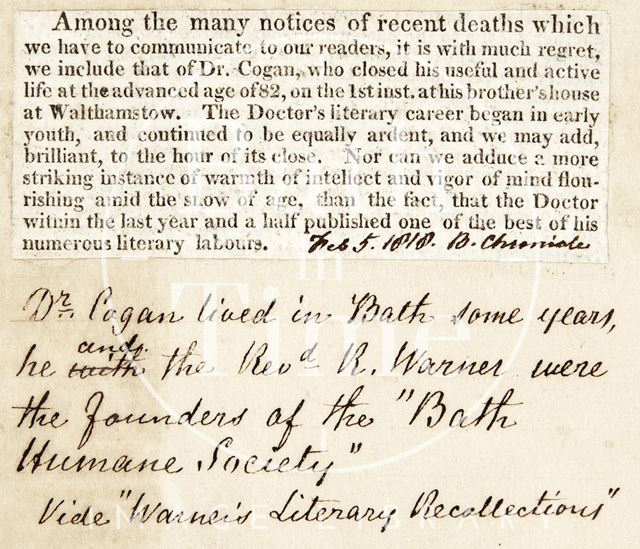 Among the many notices of recent deaths which
we have to communicate to our readers, it is with much regret,
we include that of Dr. Cogan, who closed his useful and active
life at the advanced age of 82, on the 1st inst. at his brother's house
at Walthamstow. The Doctor's literary career began in early
youth, and continued to be equally ardent, and we may add,
brilliant, to the hour of its close. Nor can we adduce a more
striking instance of warmth of intellect and vigor of mind flou-
rishing amid the snow of age, than the fact, that the Doctor
within the last year and a half published one of the best of his
numerous literary labours. Feb 5. 1818. B. Chronicle
Dr. Cogan lived in Bath some years,
he with and the Revd R. Warner were
the founders of the "Bath
Humane Society"
Vide "Warner's Literary Recollections"